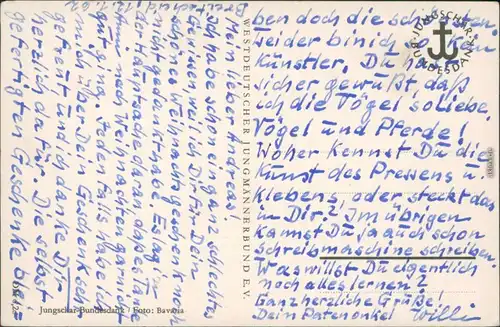 Breitscheid, 12.1.62
Mein lieber Andreas!
Ich habe schon ein ganz schlechtes
Gewissen weil ich Dir für Dein
schönes Weihnachtsgeschenk noch
nicht gedankt hab. Es lag in
der Hauptsache daran, daß es
mir nach Weihnachten garnicht
gut ging. Jedenfalls habe ich
mich über Dein Geschenk sehr
gefreut und ich danke Dir
herzlich da für. Die selbst
gefertigten Geschenke blei-
ben doch die schönsten.
Leider bin ich kein
Künstler. Du hast
sicher gewußt, daß
ich die Vögel so liebe.
Vögel und Pferde!
Woher kennst Du die
Kunst des Pressens u.
Klebens, oder steckt das
in Dir? Im übrigen
kannst Du ja auch schon
schreibmaschine schreiben.
Was willst Du eigentlich
noch alles lernen?
Ganz herzliche Grüße!
Dein Patenonkel Willi
WESTDEUTSCHER JUNGMÄNNERBUND E.V.
JUNGSCHAR-BUNDESDANK
Jungschar-Bundesdank / Foto: Bavaria